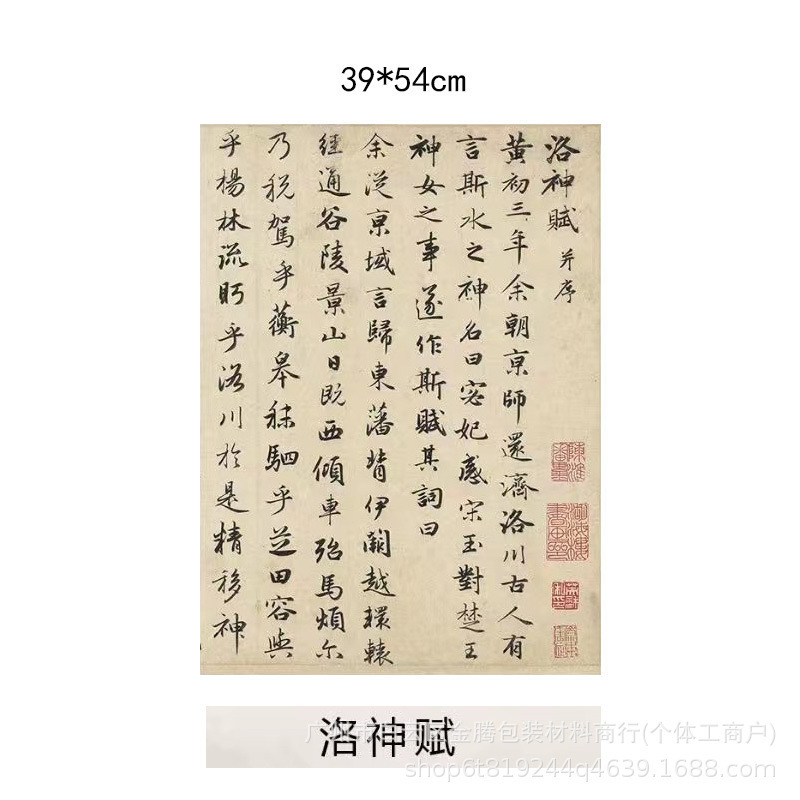 39*54cm
洛神賦 并序
黄初三年余朝京師還濟洛川古人有
言斯水之神名曰宓妃感宋玉對楚王
神女之事遂作斯賦其詞曰
余従京域言歸東藩背伊闕越轘轅
經通谷陵景山日既西傾車殆馬煩尔
乃税駕乎蘅皋秣駟乎芝田容與
乎楊林流眄乎洛川於是精移神
洛神赋
金腾包装材料商行(个体工商户)
shop6t819244q4639.1688.com